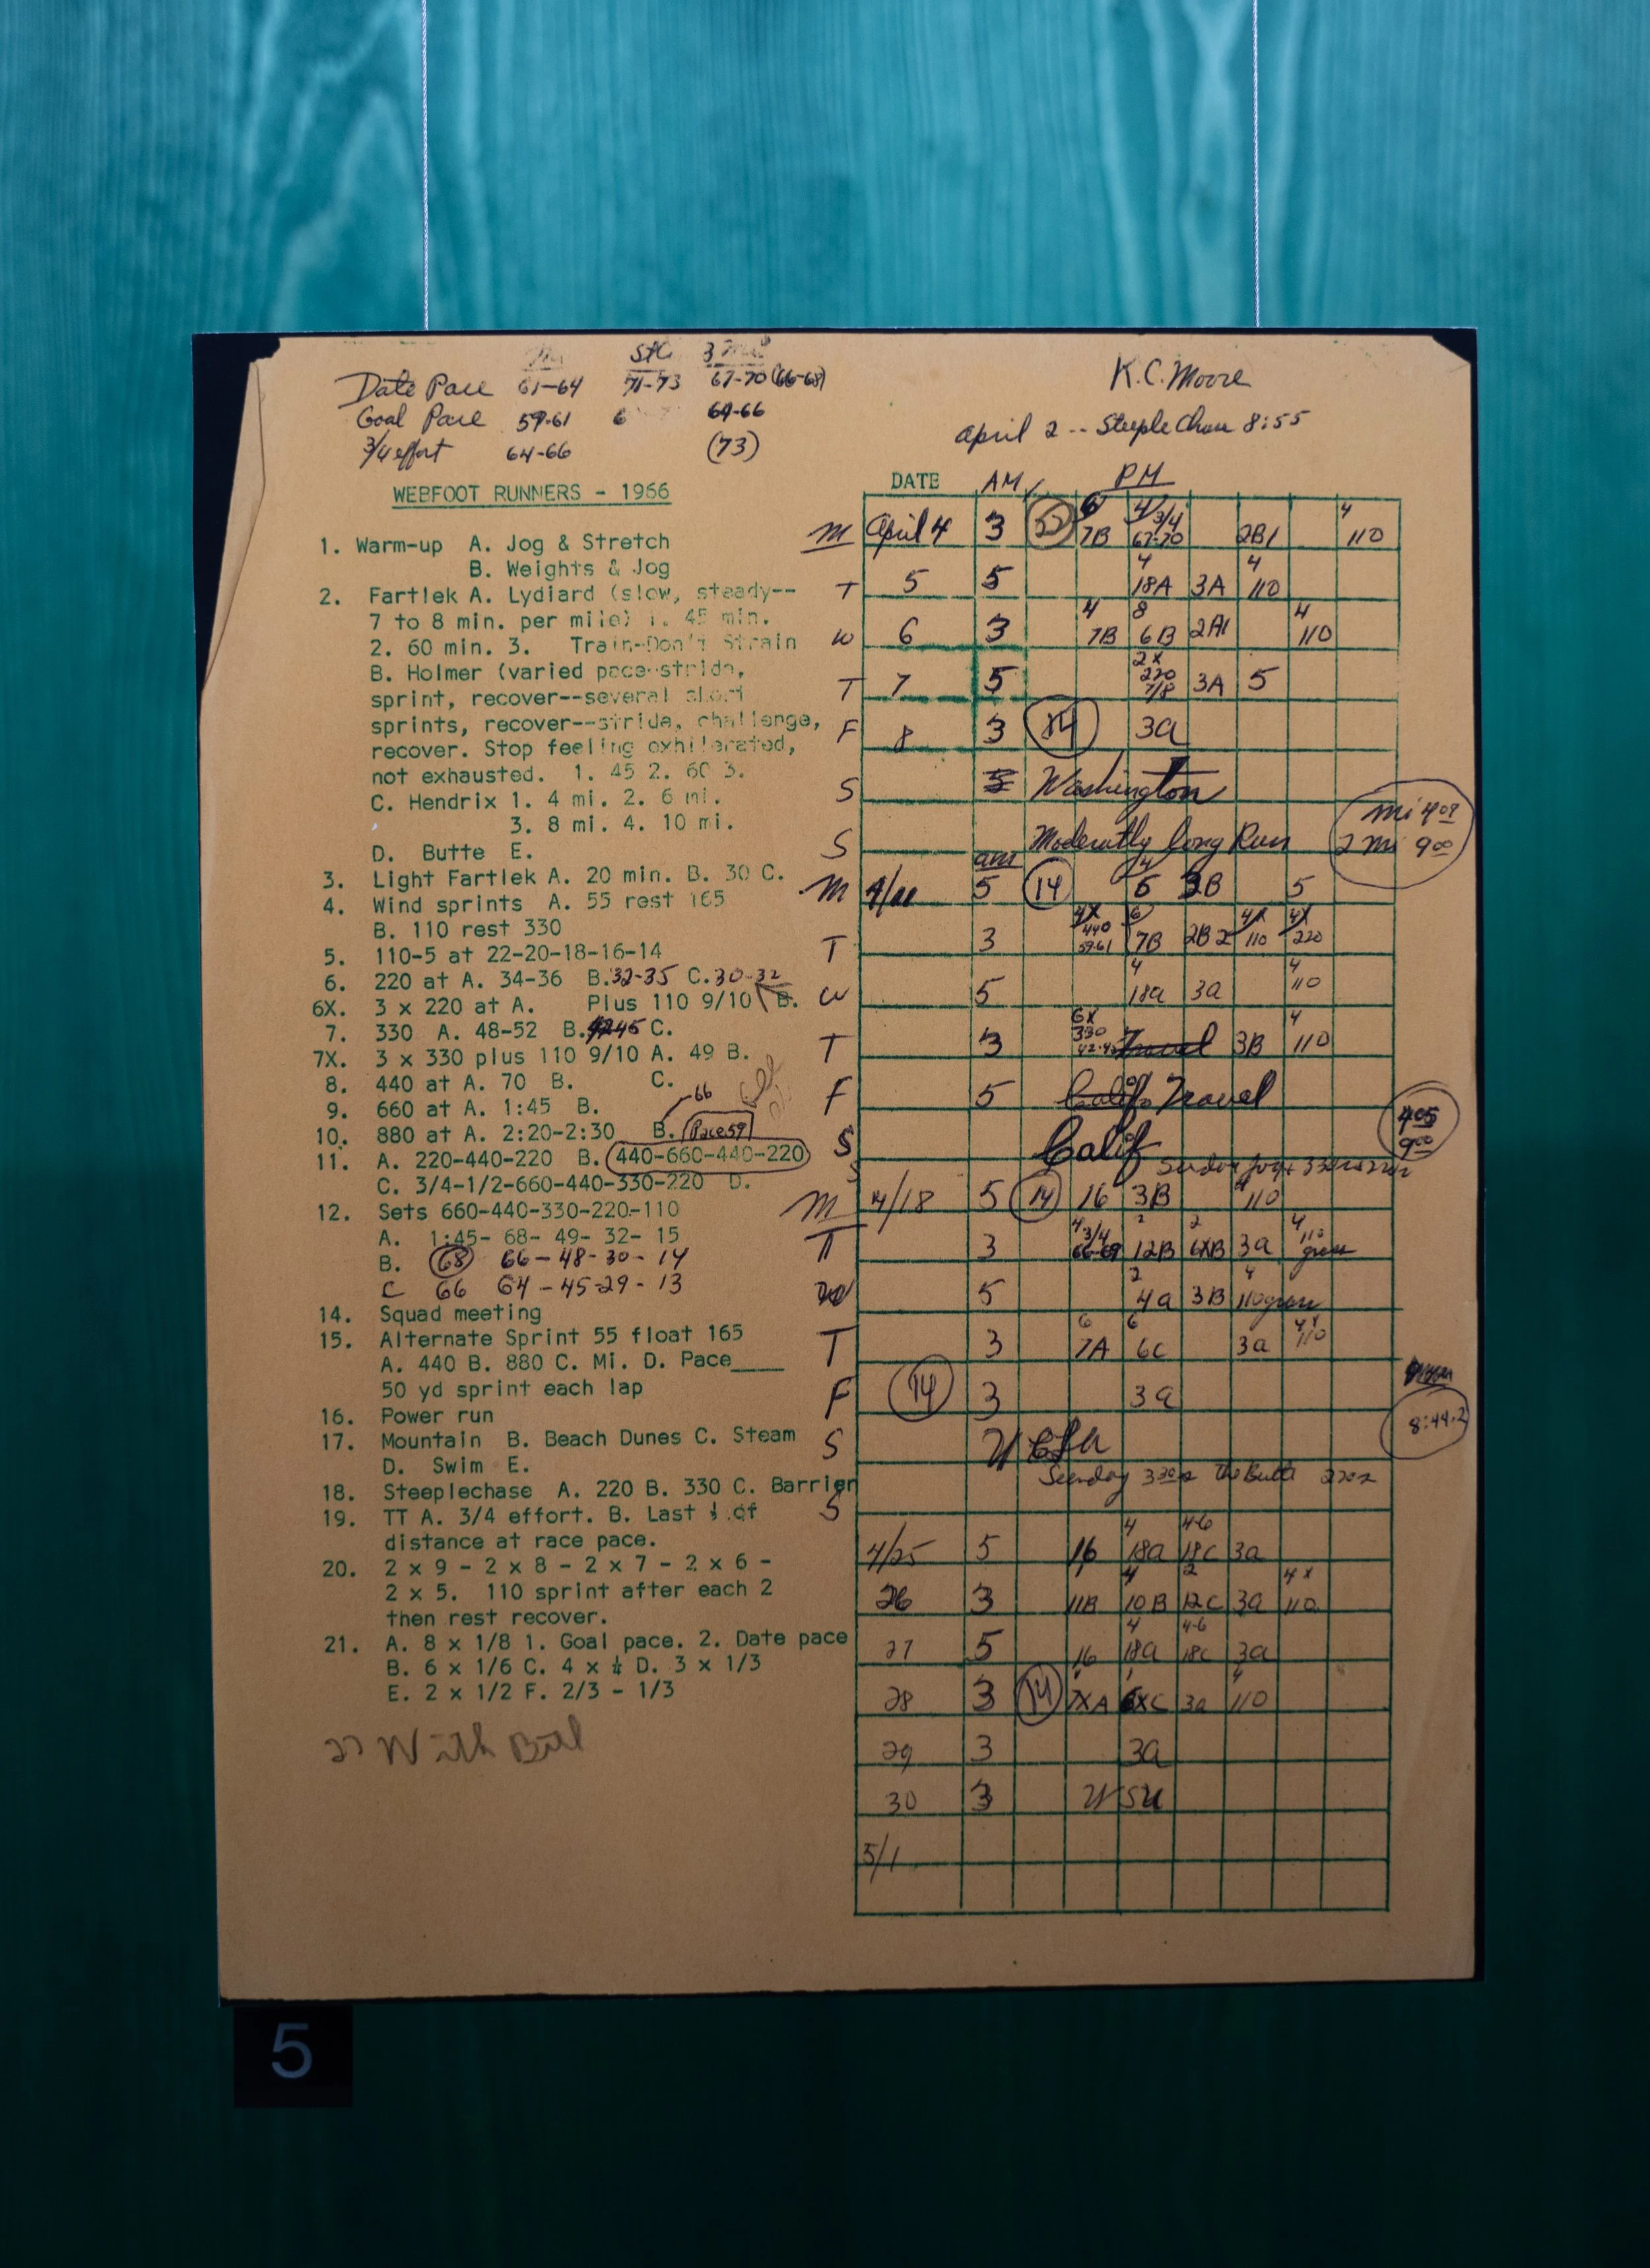 StC 3
Date Pace 61-64 71-73 67-70 (66-68)
Goal Pace 59-61 6 64-66
3/4 effort 64-66 (73)
K.C. Moore
April 2 -- SteepleChase 8:55
WEBFOOT RUNNERS - 1966
1. Warm-up A. Jog & Stretch
B. Weights & Jog
2. Fartlek A. Lydiard (slow, steady--
7 to 8 min. per mile) 1. 45 min.
2. 60 min. 3. Train-Don't Strain
B. Holmer (varied pace-stride,
sprint, recover--several short
sprints, recover--stride, challenge,
recover. Stop feeling exhilerated,
not exhausted. 1. 45 2. 60 3.
C. Hendrix 1. 4 mi. 2. 6 mi.
3. 8 mi. 4. 10 mi.
D. Butte E.
3. Light Fartlek A. 20 min. B. 30 C.
4. Wind sprints A. 55 rest 165
B. 110 rest 330
5. 110-5 at 22-20-18-16-14
6. 220 at A. 34-36 B. 32-35 C. 30-32
6X. 3 x 220 at A. Plus 110 9/10 B.
7. 330 A. 48-52 B. 45 C.
7X. 3 x 330 plus 110 9/10 A. 49 B.
8. 440 at A. 70 B. C.
9. 660 at A. 1:45 B. 66
10. 880 at A. 2:20-2:30 B. Pace 59
11. A. 220-440-220 B. 440-660-440-220
C. 3/4-1/2-660-440-330-220 D.
12. Sets 660-440-330-220-110
A. 1:45- 68- 49- 32- 15
B. 68 66-48-30-14
C 66 64-45-29-13
14. Squad meeting
15. Alternate Sprint 55 float 165
A. 440 B. 880 C. Mi. D. Pace____
50 yd sprint each lap
16. Power run
17. Mountain B. Beach Dunes C. Steam
D. Swim E.
18. Steeplechase A. 220 B. 330 C. Barrier
19. TT A. 3/4 effort. B. Last of
distance at race pace.
20. 2 x 9 - 2 x 8 - 2 x 7 - 2 x 6 -
2 x 5. 110 sprint after each 2
then rest recover.
21. A. 8 x 1/8 1. Goal pace. 2. Date pace
B. 6 x 1/6 C. 4 x ¼ D. 3 x 1/3
E. 2 x 1/2 F. 2/3 - 1/3
With Bill
DATE AM PM
M April 4 3 6 7B 4 3/4 67-70 2B1 4 110
T 5 5 4 18A 3A 4 110
W 6 3 4 7B 8 6B 2A1 4 110
T 7 5 2x 220 7/8 3A 5
F 8 3 14 3a
S Washington
S Moderatly long Run
Mi 4:09
2 Mi 9:00
am
M 4/11 5 14 4 6 3B 5
T 3 4X 440 59-61 6 7B 2B2 4X 110 4X 220
W 5 4 18a 3a 4 110
T 3 6X 330 Travel 3B 4 110
F 5 Calif. Travel
S Calif
4:05
9:00
S Sunday Jog
M 4/18 5 14 16 3B 4 110
T 3 4 3/4 66-69 2 12B 2 6XB 3a 4 110 grass
W 5 2 4a 3B 4 110 grass
T 3 6 7A 6 6C 3a 4X 110
F 14 3 3a
S UCLA
8:44.2
S Sunday 330s The Butte 220s
4/25 5 16 4 18a 4-6 18c 3a
26 3 11B 4 10B 2 12C 3a 4x 110
27 5 16 4 18a 4-6 18c 3a
28 3 14 1 7XA 1 6XC 3a 4 110
29 3 3a
30 3 WSU
5/1
5